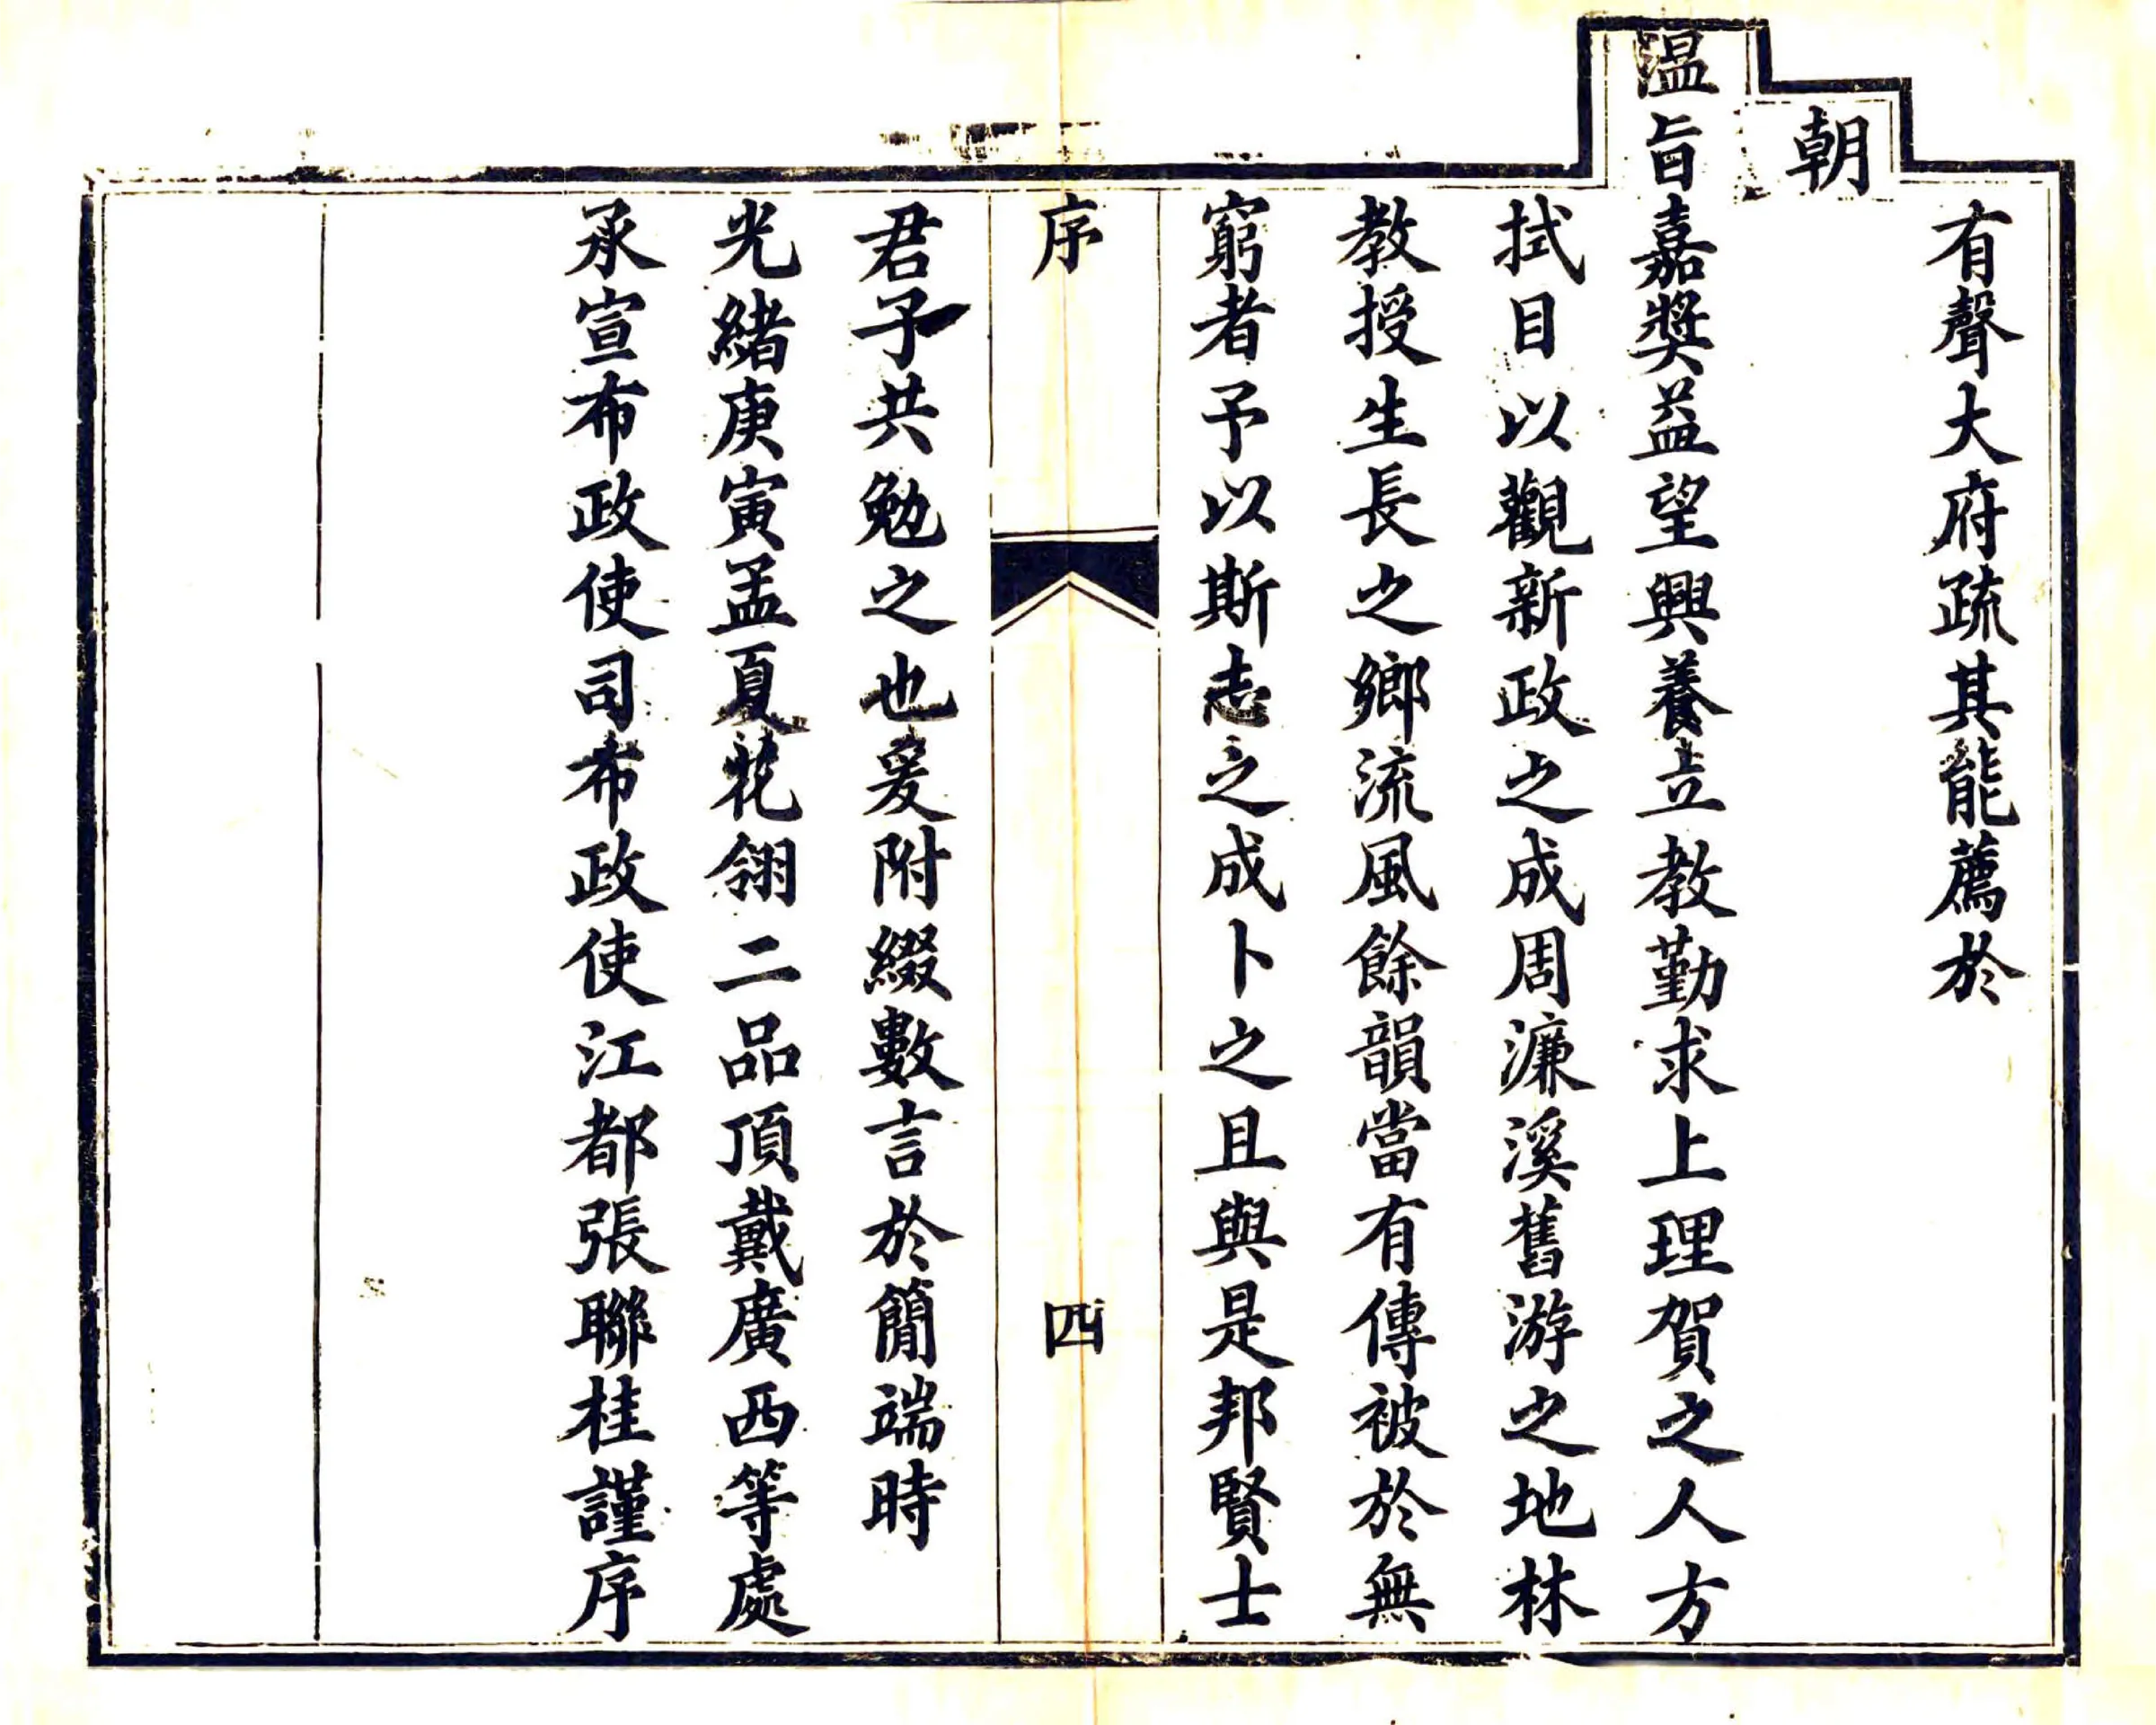 有聲大府疏其能薦於
朝
溫旨嘉獎益望興養立教勤求上理賀之人方
拭目以觀新政之成周濂溪舊游之地林
教授生長之鄉流風餘韻當有傳被於無
窮者予以斯志之成卜之且與是邦賢士
序
四
君子共勉之也爰附綴數言於簡端時
光緒庚寅孟夏花翎二品頂戴廣西等處
承宣布政使司布政使江都張聯桂謹序